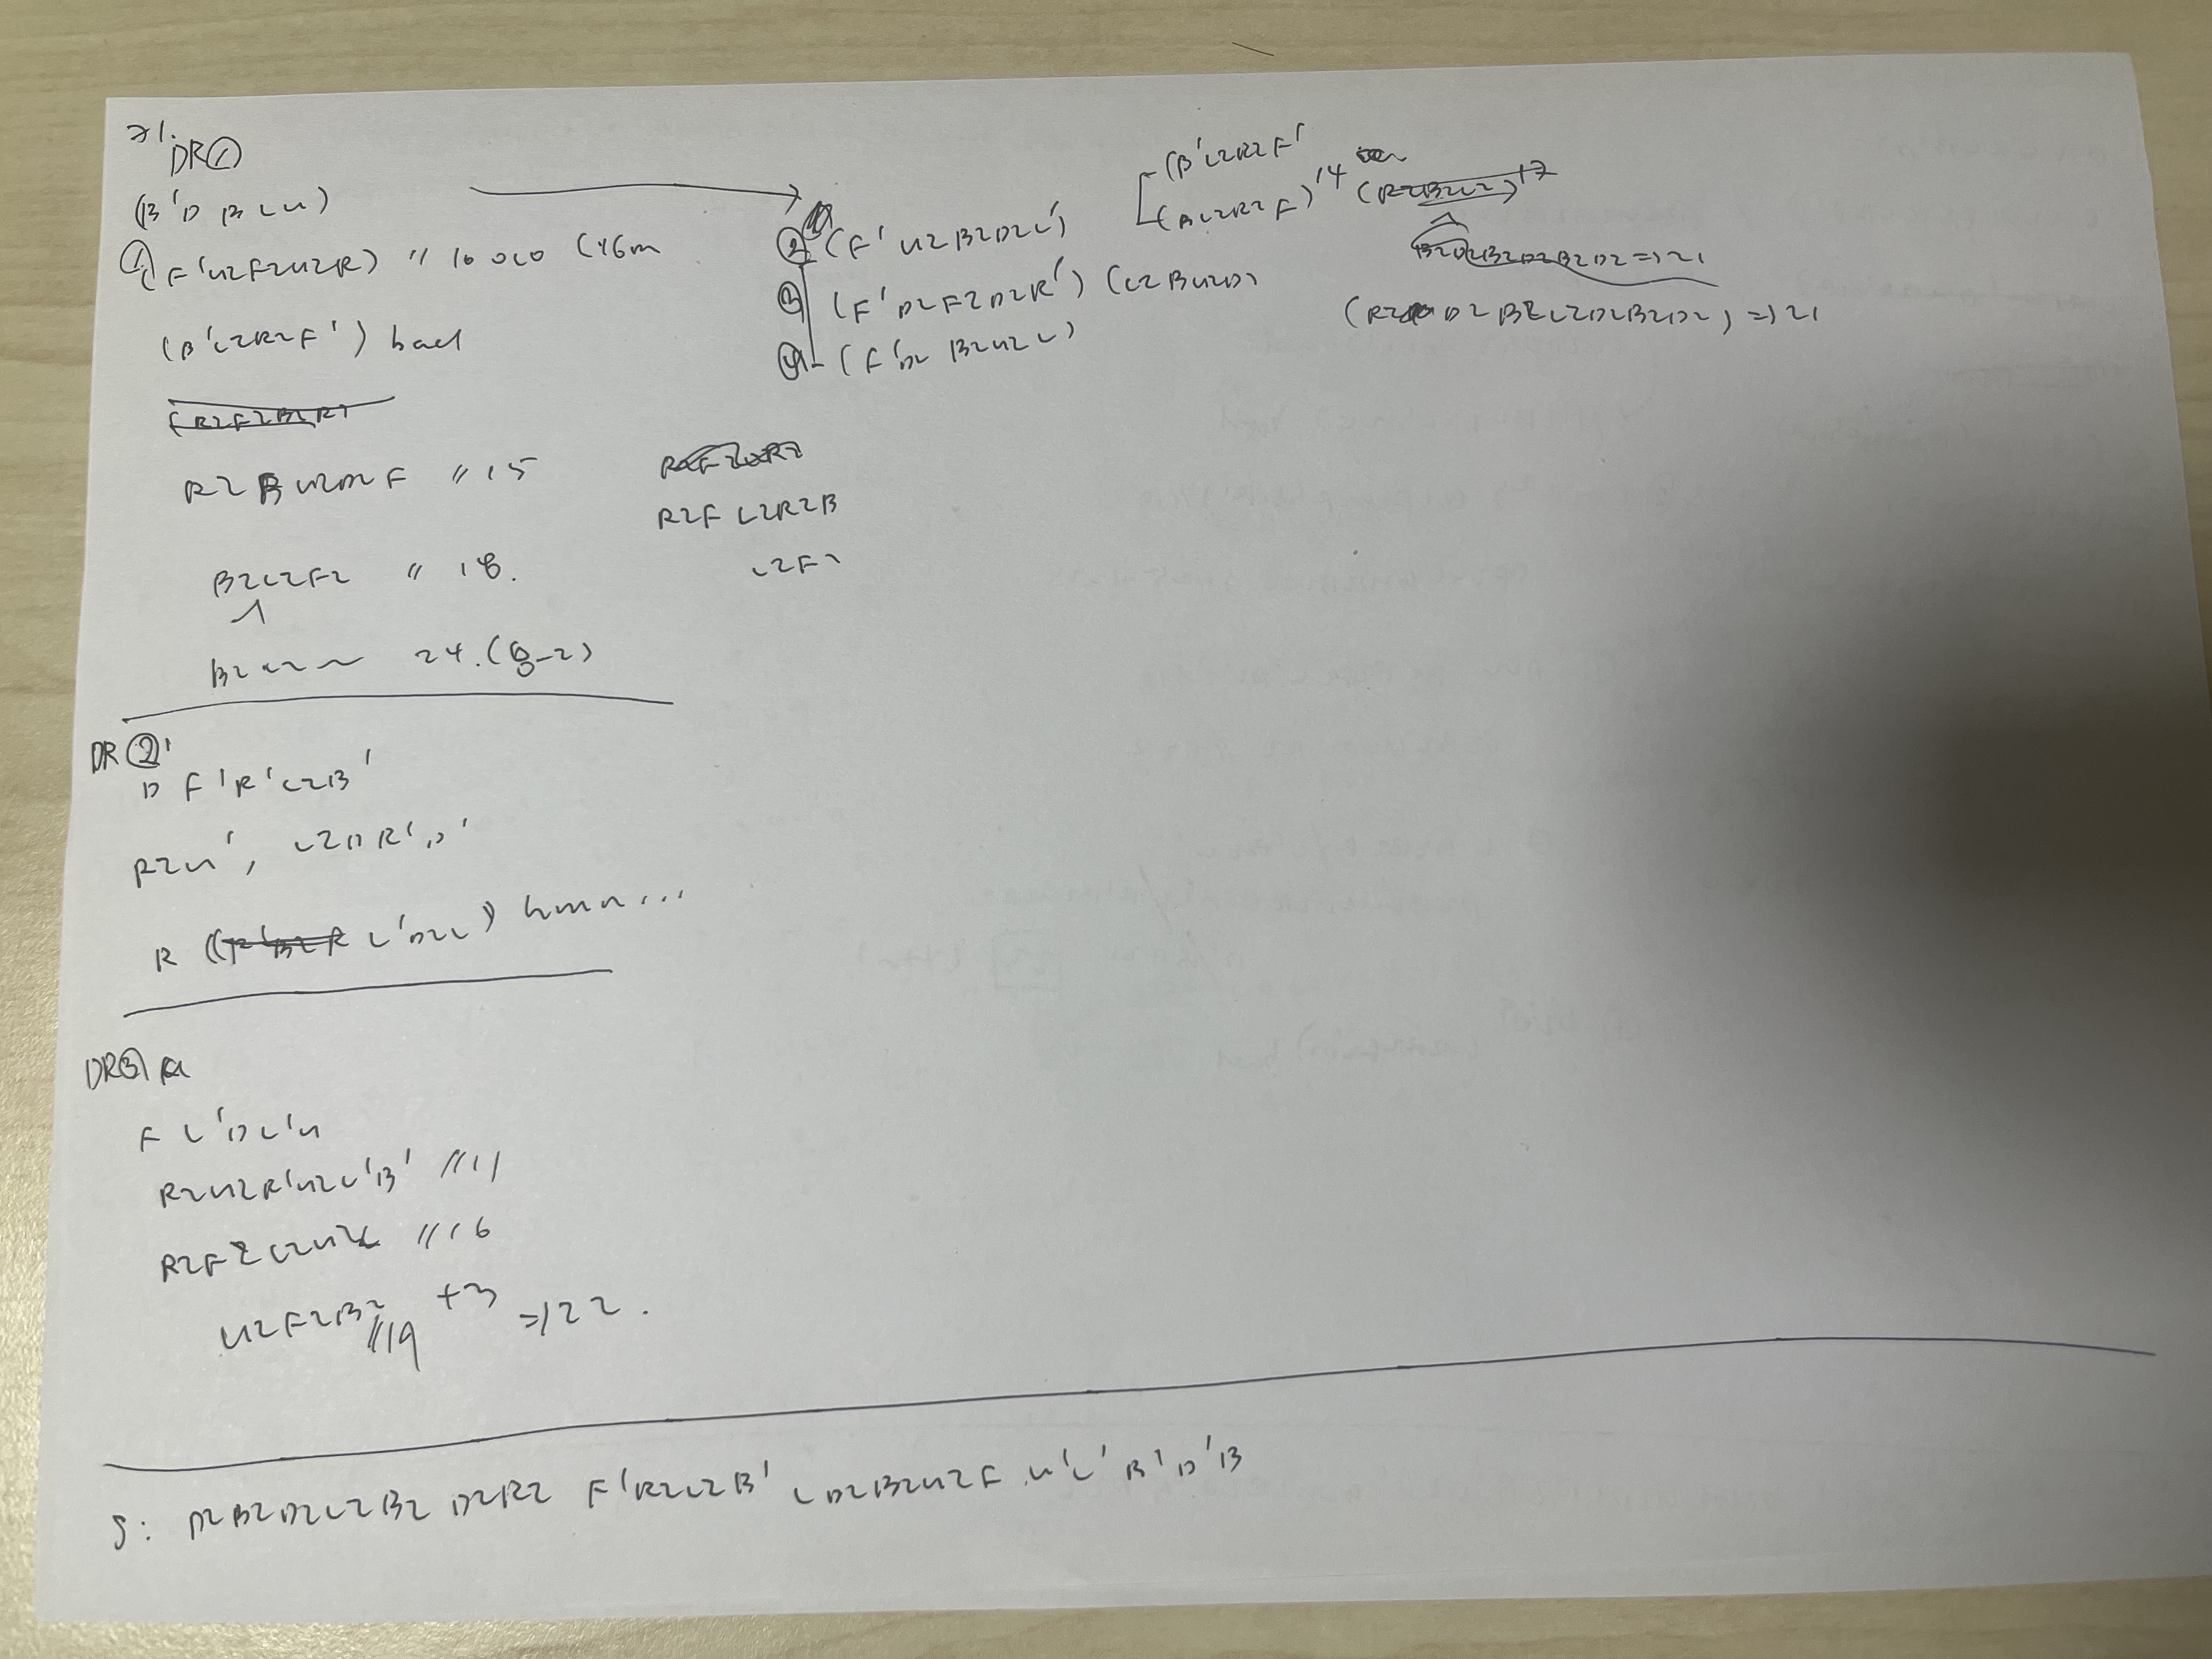 DR①
(B'D B L U)
① (F'U2F2U2R) // 10
(B'L2R2F') bad
R2 B U2D2 F // 15
B2L2F2 // 18.
24.(8-2)
② (F' U2B2D2L')
③ (F'D2F2D2R') (L2BU2D)
④ (F'D2 B2U2L)
(B'L2R2F'
(BL2R2F) 14 (R2B2L2) 17
B2D2B2D2B2D2 => 21
(R2 D2 B2 L2D2B2D2) => 21
R2F L2R2B
L2F2
DR②'
D F'R'L2B'
R2U', L2DR'D'
R ( L'D2L) hmm...
DR③
F L'DL'U
R2U2R'U2L'B' // 11
R2F2L2U2L // 16
U2F2B2 // 19 +3 => 22.
S: D2B2D2L2B2 D2R2 F'R2L2B' L D2B2U2F U'L' B'D'B